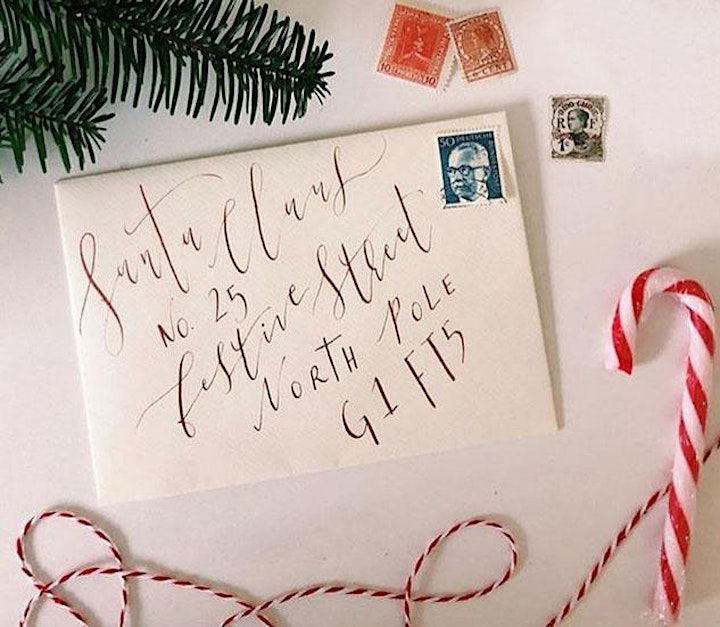 Santa Claus
No. 25
festive Street
NORTH POLE
G1 FT5
10 10
CENT
50 DEUTSCHE
R F